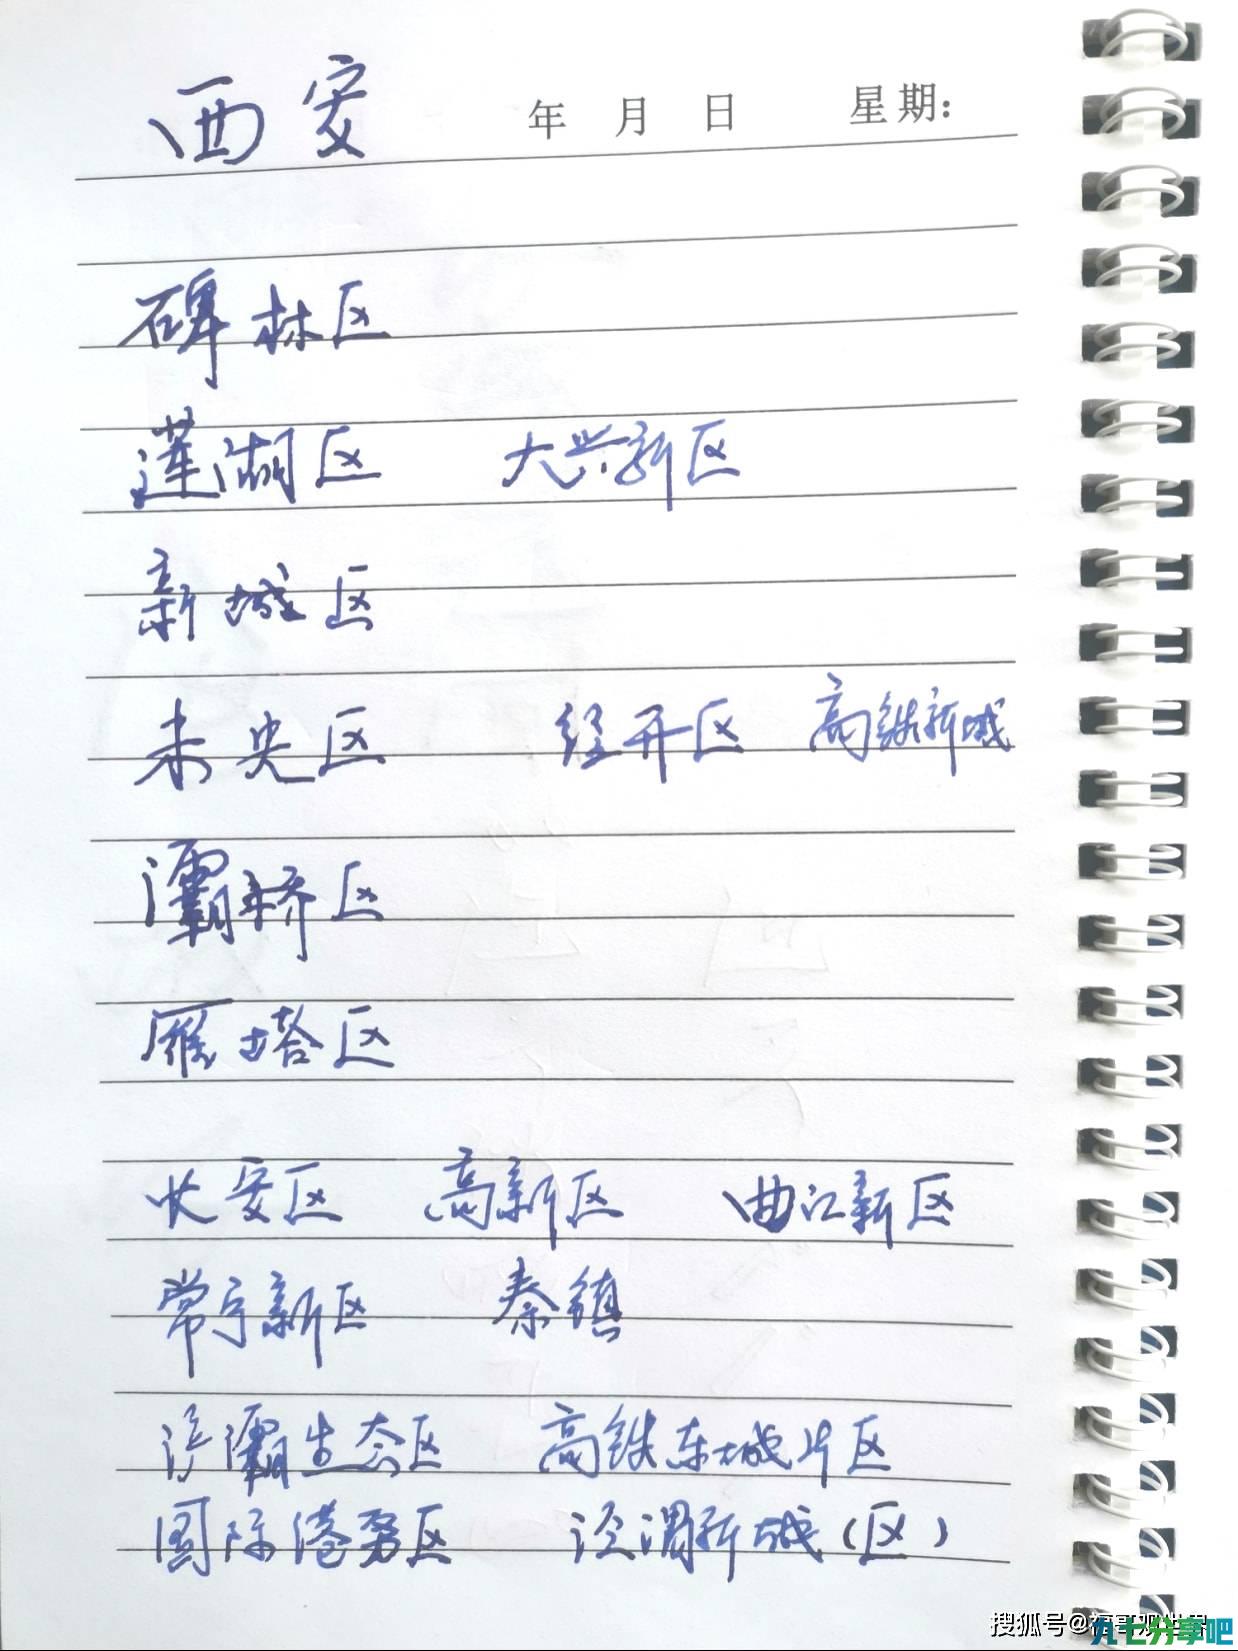 西安 年 月 日 星期:
碑林区
莲湖区 大兴新区
新城区
未央区 经开区 高铁新城
灞桥区
雁塔区
长安区 高新区 曲江新区
常宁新区 秦镇
浐灞生态区 高铁东城片区
国际港务区 泾渭新城(区)
搜狐号@福哥观世界
九七分享吧